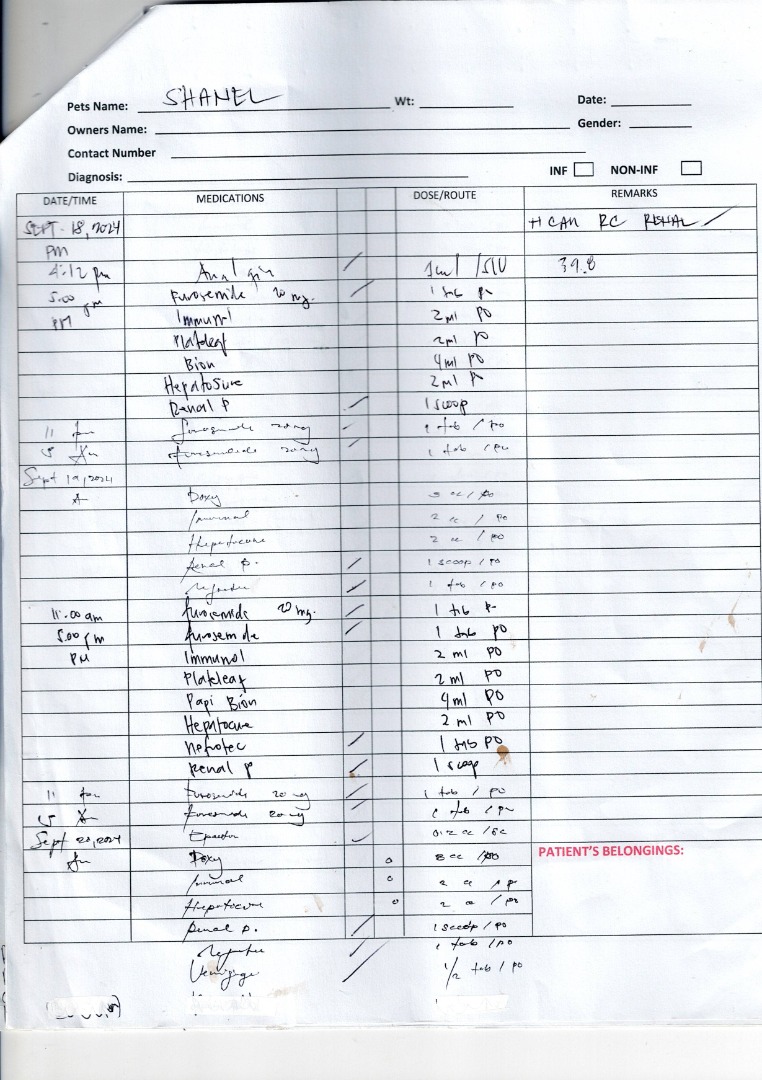 Pets Name: SHANEL Wt: Date:
Owners Name: Gender:
Contact Number
Diagnosis: INF NON-INF
DATE/TIME MEDICATIONS DOSE/ROUTE REMARKS
SEPT. 18, 2024 RC RENAL
PM
4:12 pm Analgin 39.8
5:00 pm Furosemide 20 mg. 1 tab
PM Immunol 2ml PO
Plateleaf 2ml PO
Bion 4ml PO
Hepatosure 2ml
Renal P 1 scoop
11 furosemide 20mg 1 tab / po
5 furosemide 20mg 1 tab / po
Sept 19, 2024
Doxy 3 cc / po
Immunol 2 cc / po
Hepatocure 2 cc / po
Renal p. 1 scoop / po
1 tab / po
11:00 am furosemide 20 mg. 1 tab
5:00 pm furosemide 1 tab PO
PM Immunol 2 ml PO
Plateleaf 2 ml PO
Papi Bion 4ml PO
Hepatocure 2 ml PO
Nefrotec 1 tab PO
Renal P 1 scoop
11 Furosemide 20 mg 1 tab / po
5 furosemide 20 mg 1 tab / po
Sept 20, 2024 0.2 cc / sc
Doxy 3 cc / po
Immunol 2 cc / po
Hepatocure 2 cc / po
Renal p. 1 scoop / po
1 tab / po
1/2 tab / po
PATIENT'S BELONGINGS: